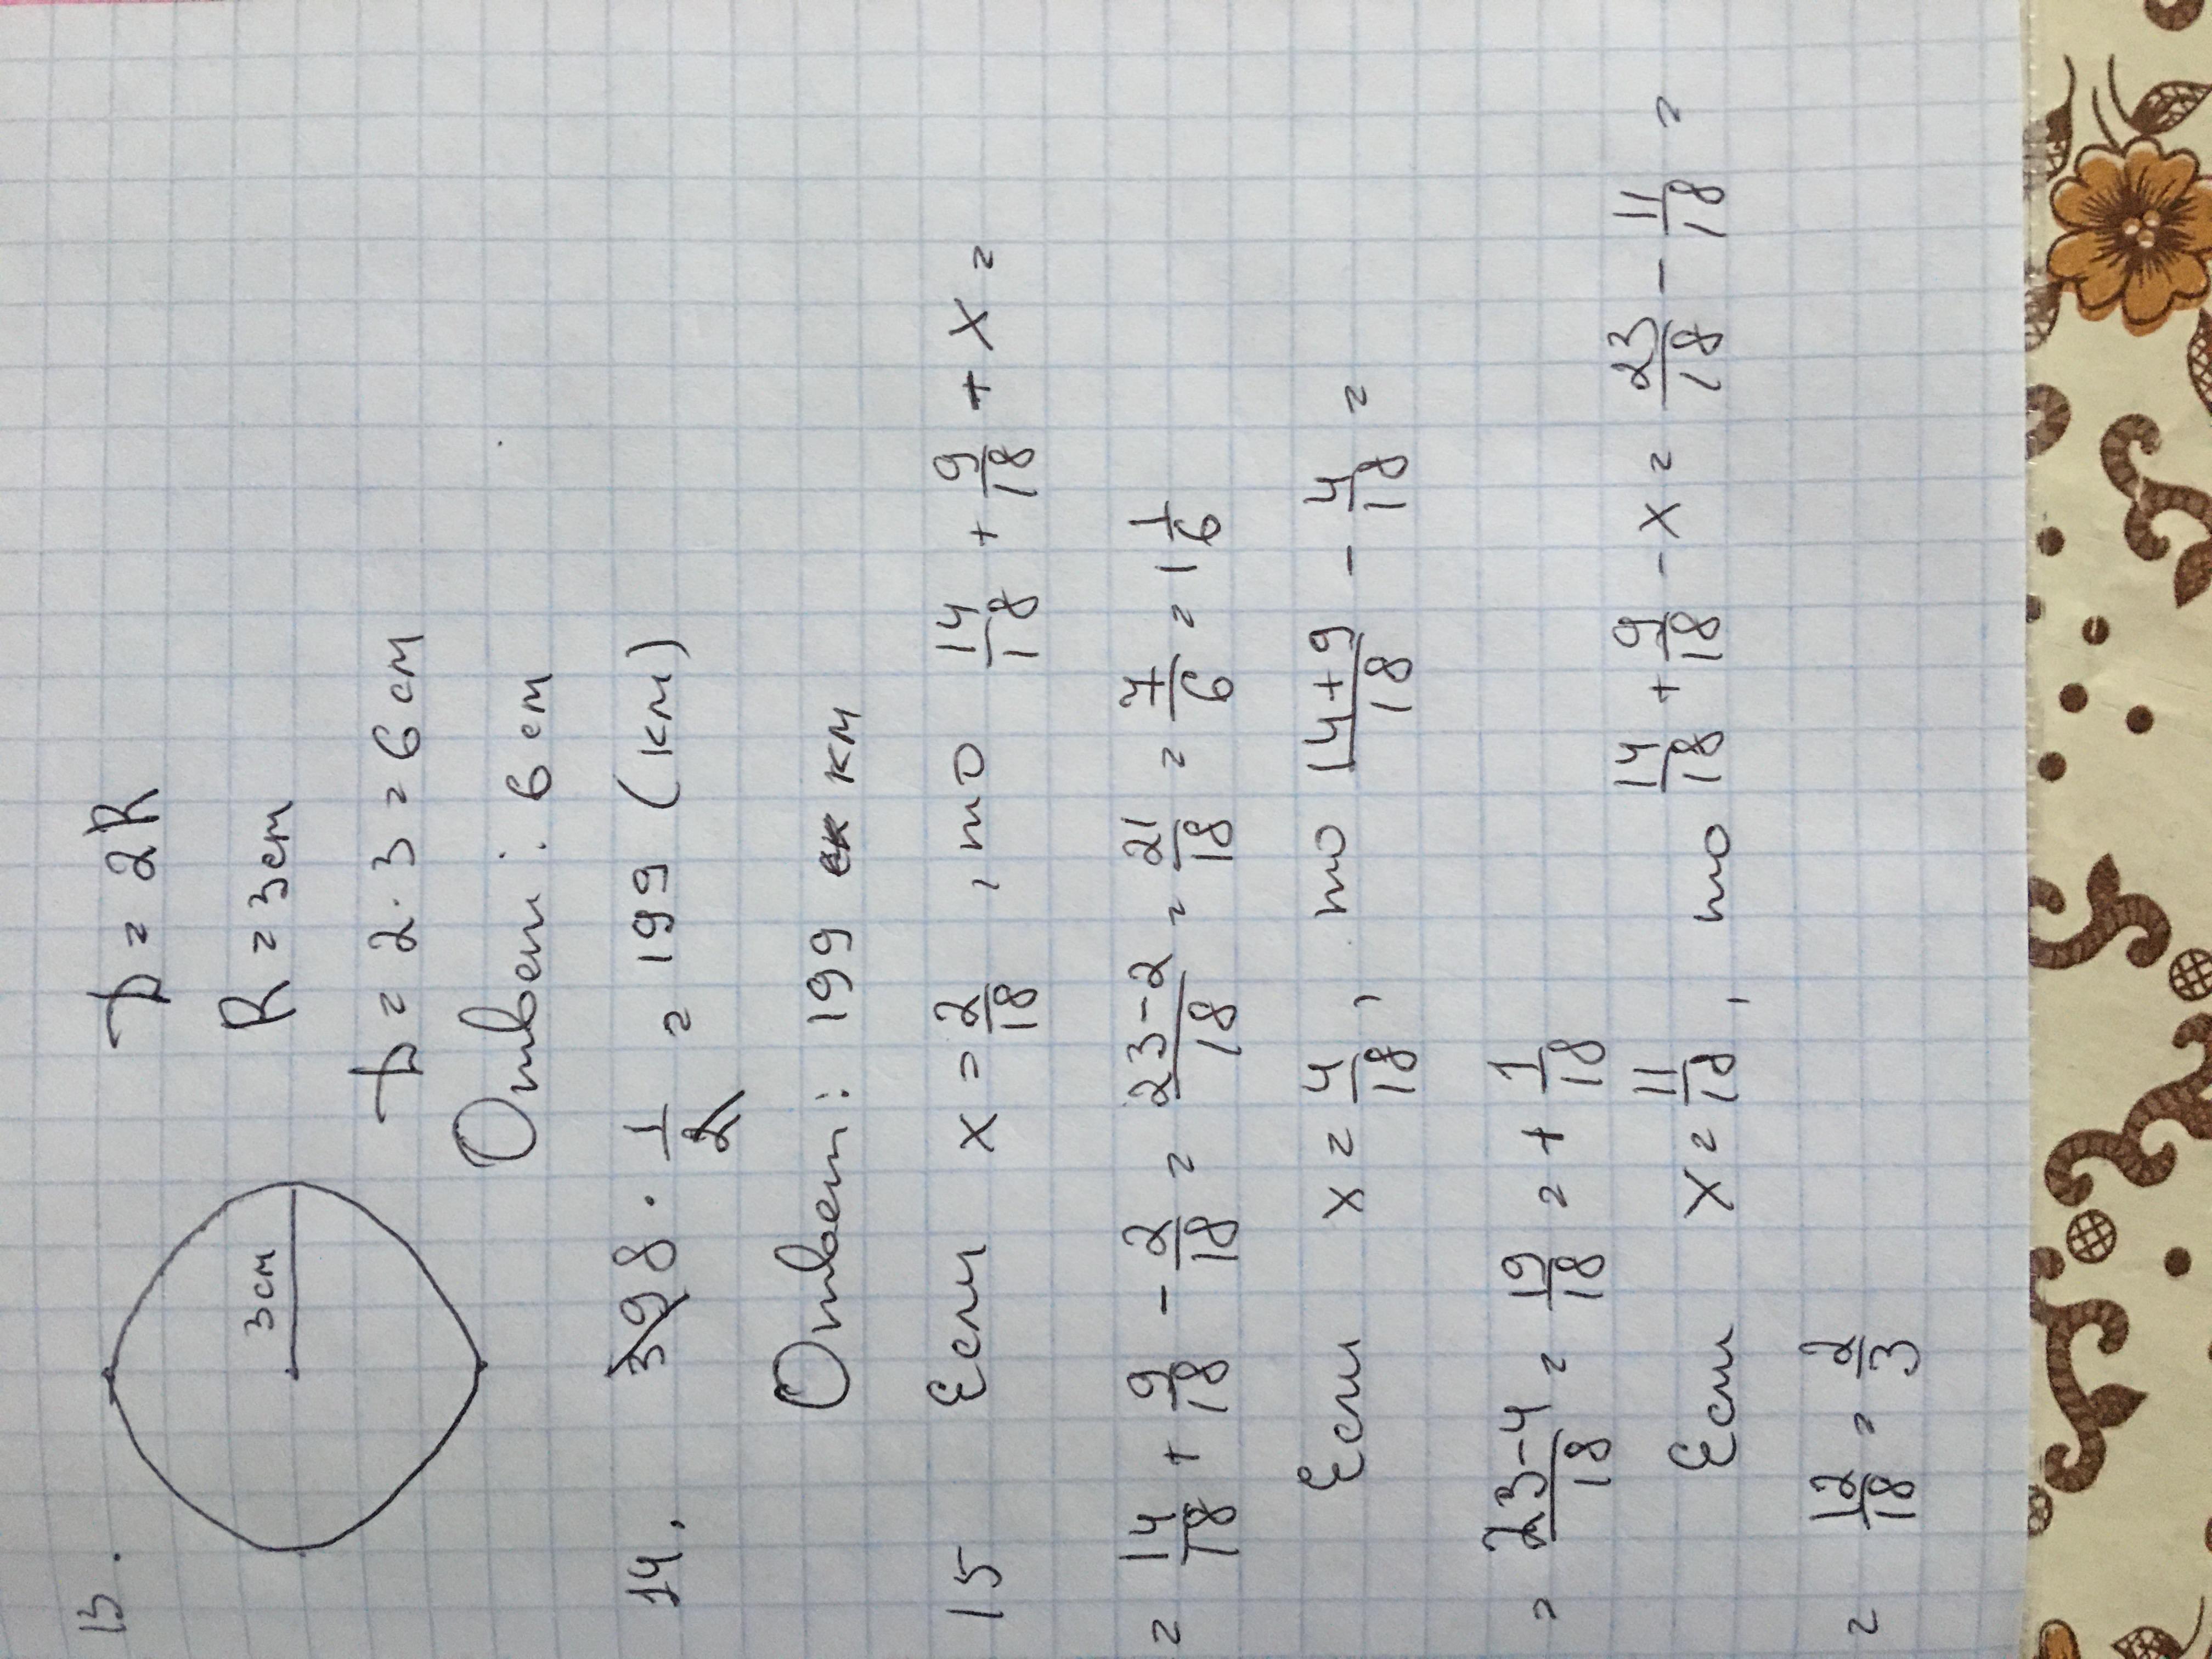 13.
3см
D = 2R
R = 3см
D = 2 · 3 = 6 см
Ответ: 6 см
14. 398 · 1/2 = 199 (км)
Ответ: 199 км
15 Если x = 2/18, то 14/18 + 9/18 + x =
= 14/18 + 9/18 - 2/18 = 23-2/18 = 21/18 = 7/6 = 1 1/6
Если x = 4/18, то 14+9/18 - 4/18 =
= 23-4/18 = 19/18 = + 1/18
Если x = 11/18, то 14/18 + 9/18 - x = 23/18 - 11/18 =
= 12/18 = 2/3